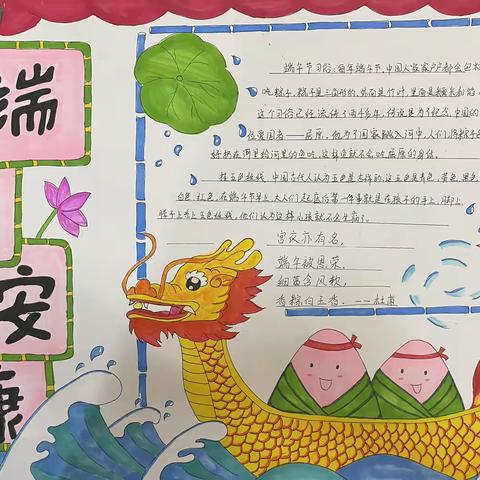 端
安
康
端午节习俗:每年端午节,中国人家家户户都会包粽
吃粽子,粽子是三角形的,外面是竹叶,里面是糯米和馅
这个习俗已经流传了两千多年,传说是为了纪念中国的
位爱国者——屈原,他为了国家跳入河中,人们将粽子
好扔在河里给河里的鱼吃,这样鱼就不会吃屈原的身体。
挂五色丝线,中国古代人认为五色是吉祥的,这五色是青色,黄色,黑色
白色,红色,在端午节早上大人们起床后第一件事就是在孩子的手上,脚上,
脖子上系上五色丝线,他们认为这样小孩就不会生病了。
宫衣亦有名,
端午被恩荣。
细葛含风软,
香粽白玉香。——杜甫